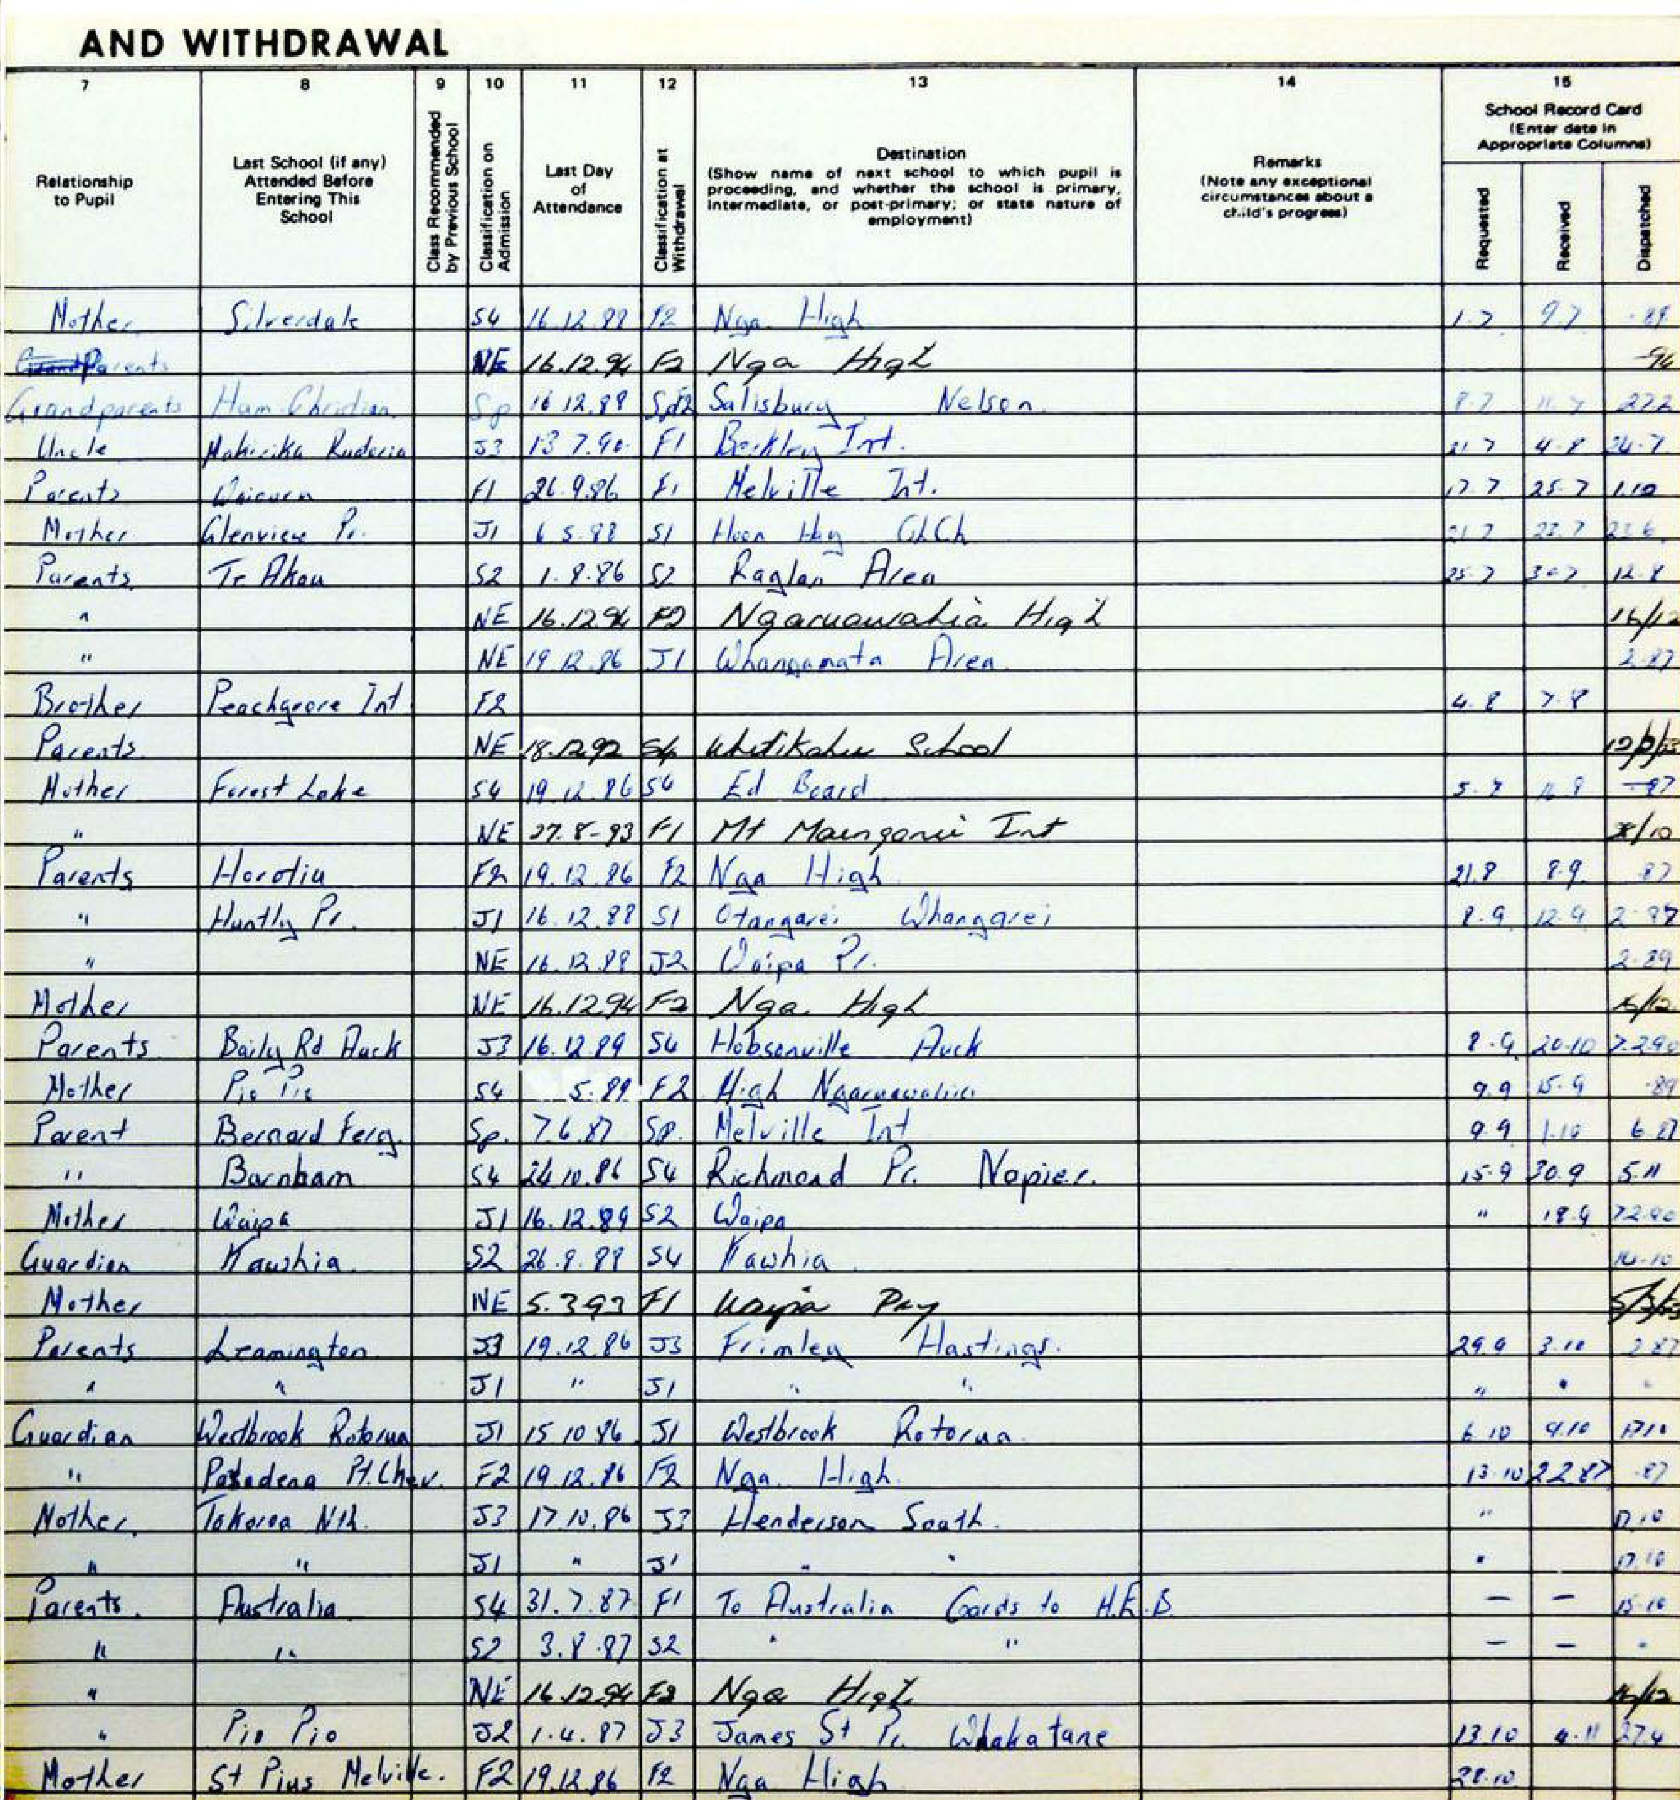 AND WITHDRAWAL
7 8 9 10 11 12 13 14 15
Relationship to Pupil
Last School (if any) Attended Before Entering This School
Class Recommended by Previous School
Classification on Admission
Last Day of Attendance
Classification at Withdrawal
Destination
(Show name of next school to which pupil is proceeding, and whether the school is primary, intermediate, or post-primary; or state nature of employment)
Remarks
(Note any exceptional circumstances about a child's progress)
School Record Card
(Enter date in Appropriate Columns)
Requested Received Dispatched
Mother Silverdale S4 16.12.88 F2 Nga. High 1.7 9.7
Parents NE 16.12.94 F2 Nga High
Grandparents Ham. Christian Sp 16.12.88 Salisbury Nelson 8.7
Uncle J3 13.7.90 F1 Int. 21.7 4.8 24.7
Parents F1 26.9.86 F1 Melville Int. 17.7 25.7 1.10
Mother Glenview Pr. J1 6.5.88 S1 Hoon Hay 21.7 23.7 23.6
Parents Te Akau S2 1.8.86 S2 Raglan Area 25.7 30.7 12.8
" NE 16.12.94 F2 Ngaruawahia High 16/12
" NE 19.12.86 J1 Whangamata Area 2.87
Brother Peachgrove Int F2 4.8 7.8
Parents NE 18.12.92 S4 Whitikahu School
Mother Forest Lake S4 19.12.86 S4 Ed Beard
" NE 27.8-93 F1 Mt Maunganui Int
Parents Horotiu F2 19.12.86 F2 Nga High 21.8 8.9 87
" Huntly Pr. J1 16.12.88 S1 Otangarei Whangarei 8.9 12.9
" NE 16.12.88 J2 Waipa Pr. 2.89
Mother NE 16.12.94 F2 Nga. High 16/12
Parents Baily Rd Auck J3 16.12.89 S4 Hobsonville Auck 8.9 20.10 7.2.90
Mother Pio Pio S4 5.89 F2 High Ngaruawahia 9.9 15.9 89
Parent Bernard Ferg. Sp. 7.6.87 Sp. Melville Int 9.9 1.10 6.87
" Burnham S4 24.10.86 S4 Richmond Pr. Napier. 15.9 30.9 5.11
Mother Waipa J1 16.12.89 S2 Waipa " 18.9 7.2.90
Guardian Kawhia S2 26.8.88 S4 Kawhia
Mother NE 5.3.93 F1 5/3/93
Parents Leamington J3 19.12.86 J3 Frimley Hastings. 29.9 3.10 2.87
" " J1 " J1 " " " " "
Guardian Westbrook Rotorua J1 15.10.86 J1 Westbrook Rotorua 6.10 9.10 17.10
" Pasadena Pt.Chev. F2 19.12.86 F2 Nga. High. 13.10 2.2.87 .87
Mother Tokoroa Nth. J3 17.10.86 J3 Henderson South. " 17.10
" " J1 " J1 " " " 17.10
Parents. Australia S4 31.7.87 F1 To Australia Cards to H.E.B — — 15.10
" " S2 3.8.87 S2 " " — — "
" NE 16.12.94 F2 Nga High 16/12
" Pio Pio J2 1.4.87 J3 James St Pr. Whakatane 13.10 4.11 27.4
Mother St Pius Melville. F2 19.12.86 F2 Nga High 28.10